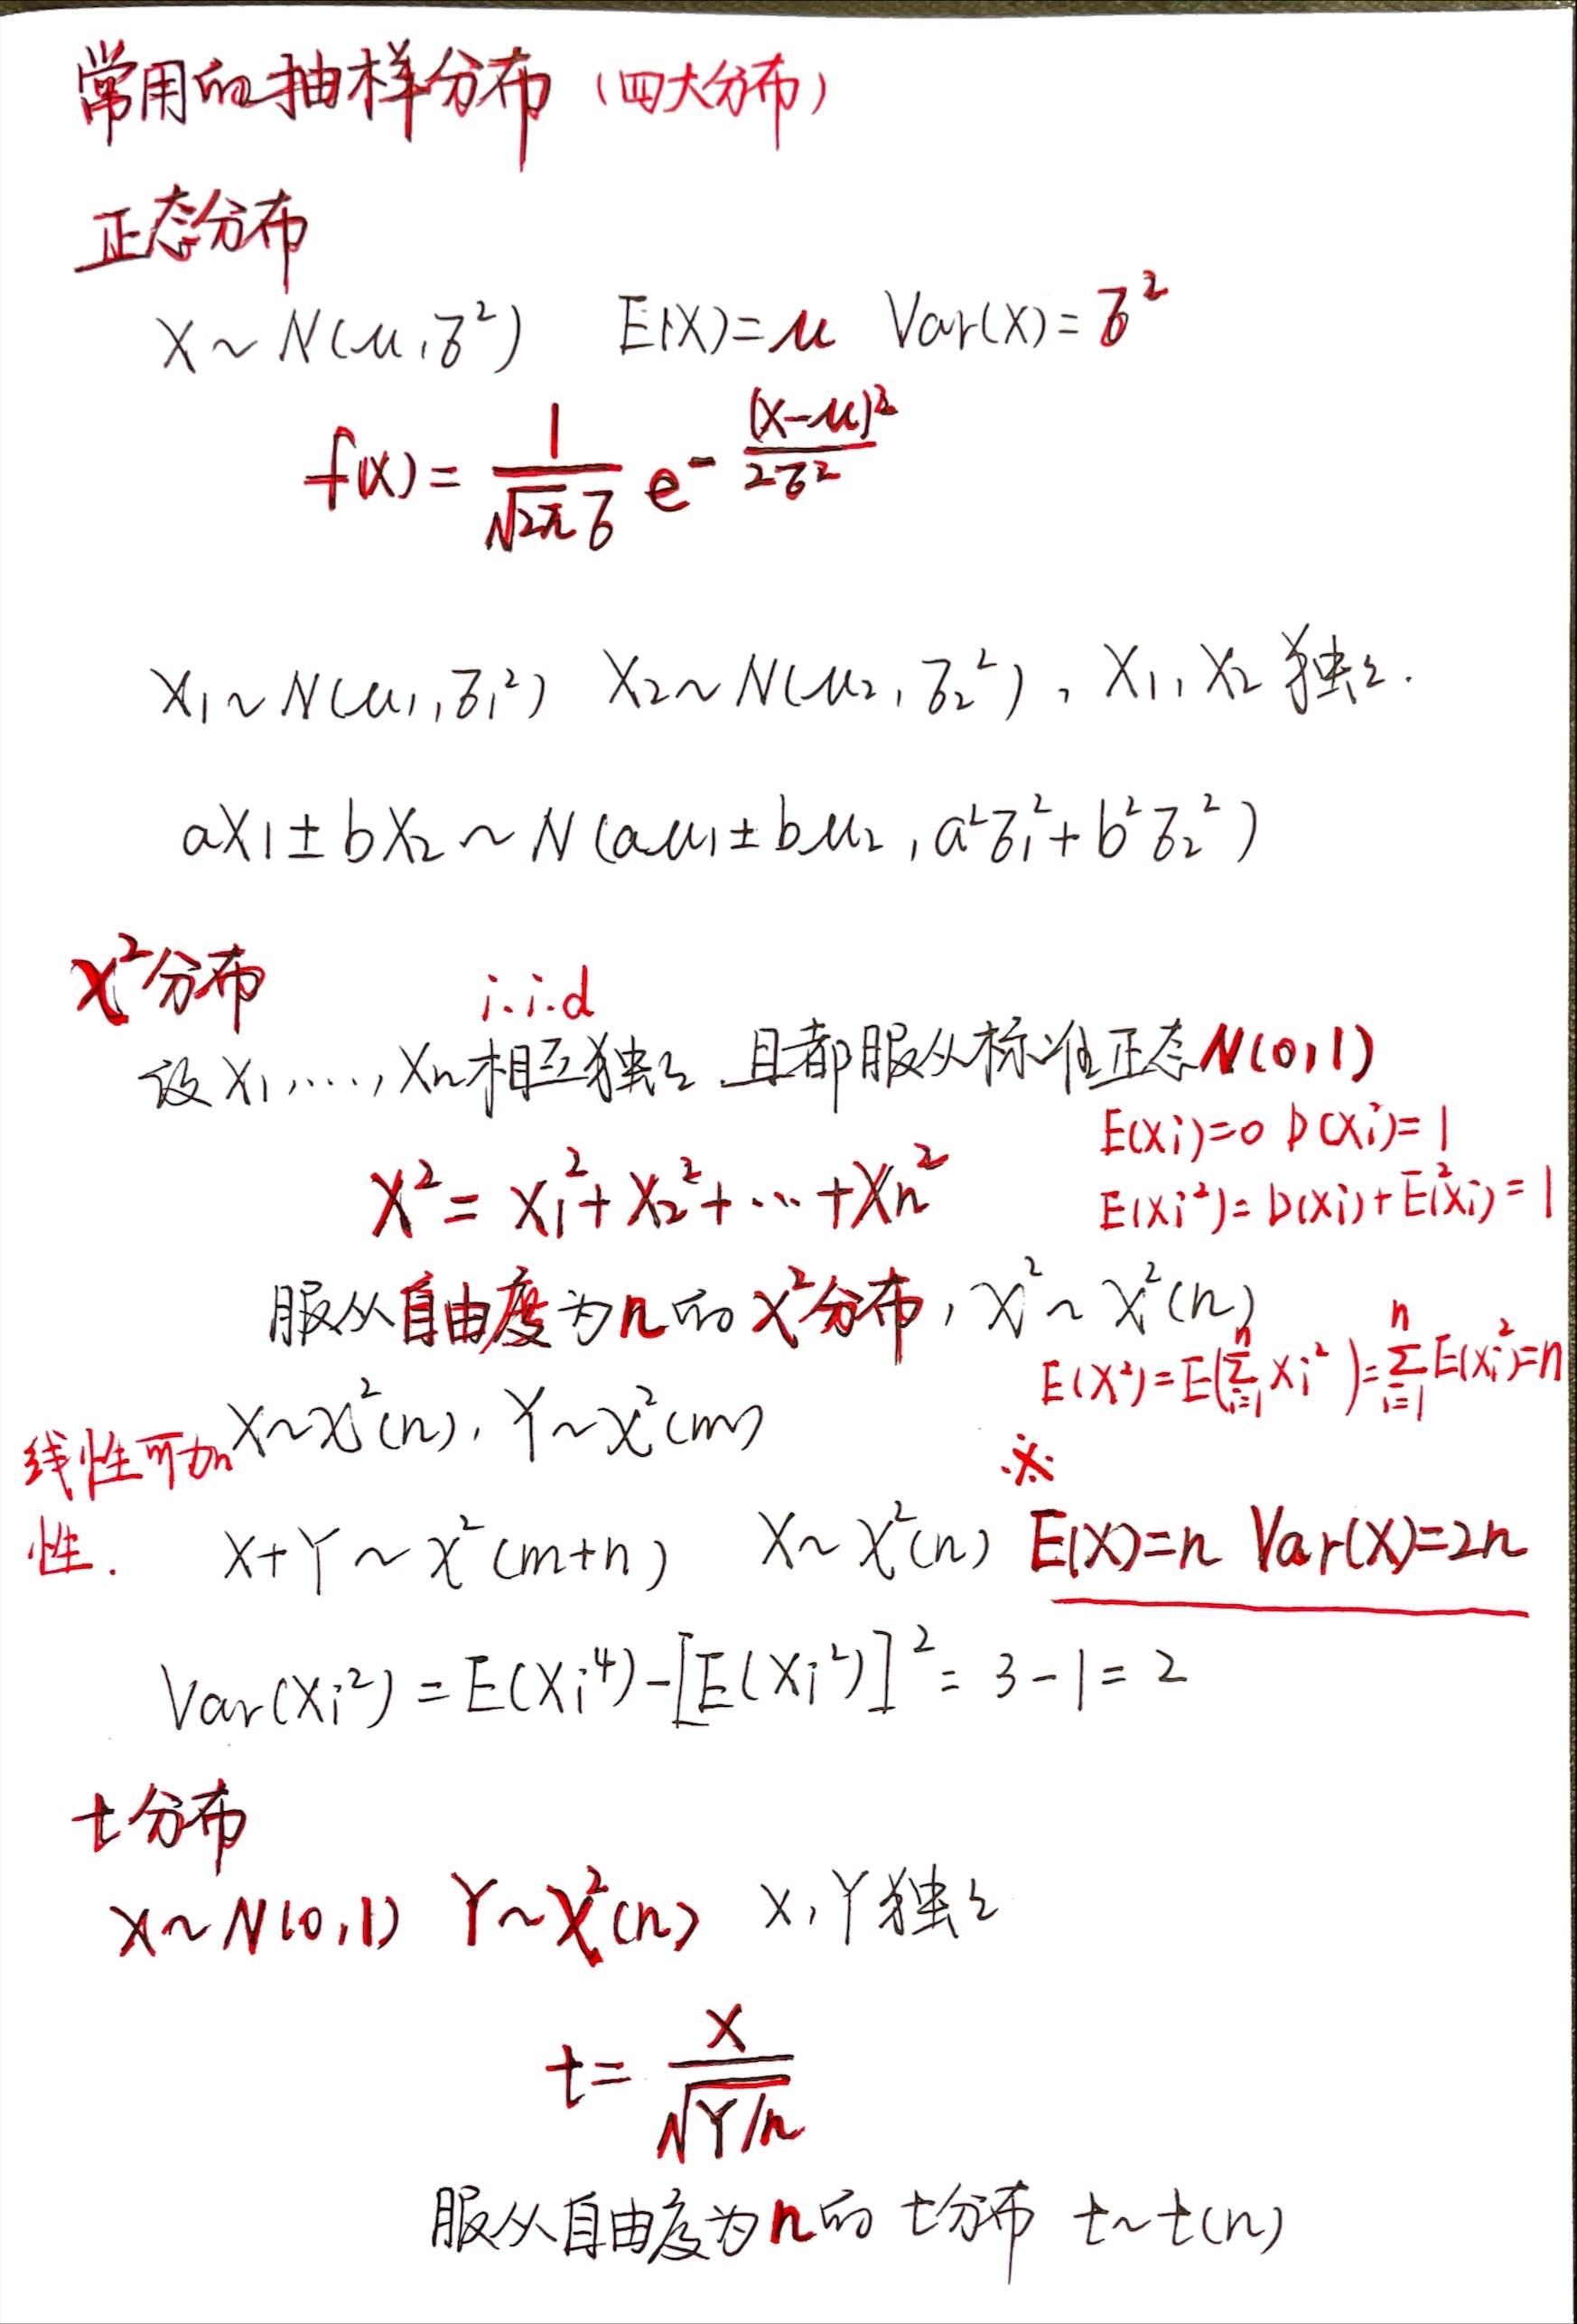 常用的抽样分布（四大分布）
正态分布
X～N(μ,σ²) E(X)=μ Var(X)=σ²
f(x)= 1/(√2π σ) e^-(x-μ)²/2σ²
X₁～N(μ₁,σ₁²) X₂～N(μ₂,σ₂²), X₁,X₂独立.
aX₁±bX₂～N(aμ₁±bμ₂,a²σ₁²+b²σ₂²)
χ²分布
i.i.d
设X₁,…,Xn相互独立且都服从标准正态N(0,1)
E(Xi)=0 D(Xi)=1
χ²=X₁²+X₂²+…+Xn²
E(Xi²)=D(Xi)+E²(Xi)=1
服从自由度为n的χ²分布, χ²～χ²(n)
E(χ²)=E(∑ⁿᵢ₌₁Xi²)=∑ⁿᵢ₌₁E(Xi²)=n
X～χ²(n), Y～χ²(m)
线性可加性.
X+Y～χ²(m+n) X～χ²(n) ※ E(X)=n Var(X)=2n
Var(Xi²)=E(Xi⁴)-[E(Xi²)]²=3-1=2
t分布
X～N(0,1) Y～χ²(n) X,Y独立
t= X/√Y/n
服从自由度为n的 t分布 t～t(n)